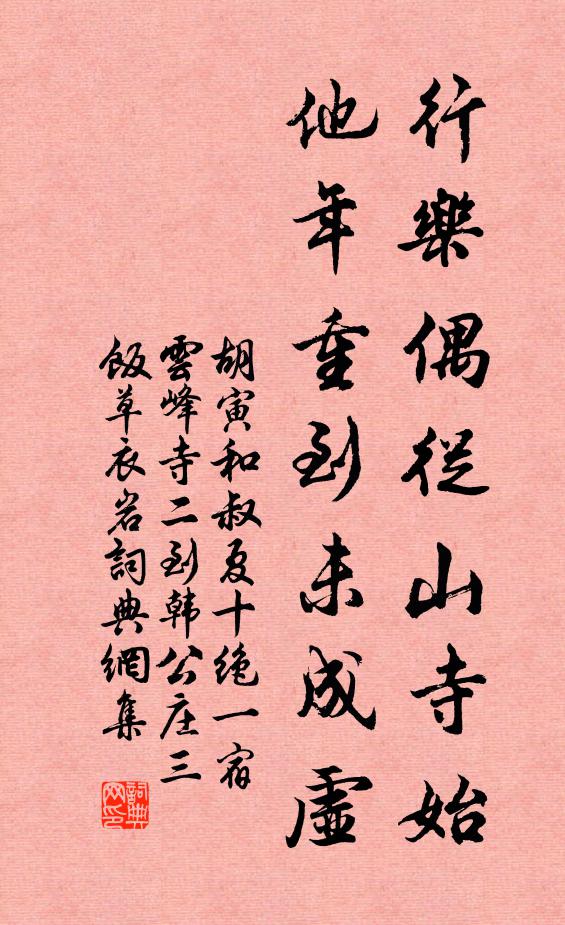 行樂偶從山寺始
他年重到未成虛
胡寅和叔夏十絕一宿
雲峰寺二到韓公庄三
飯草衣岩詞典網集
詞典网印